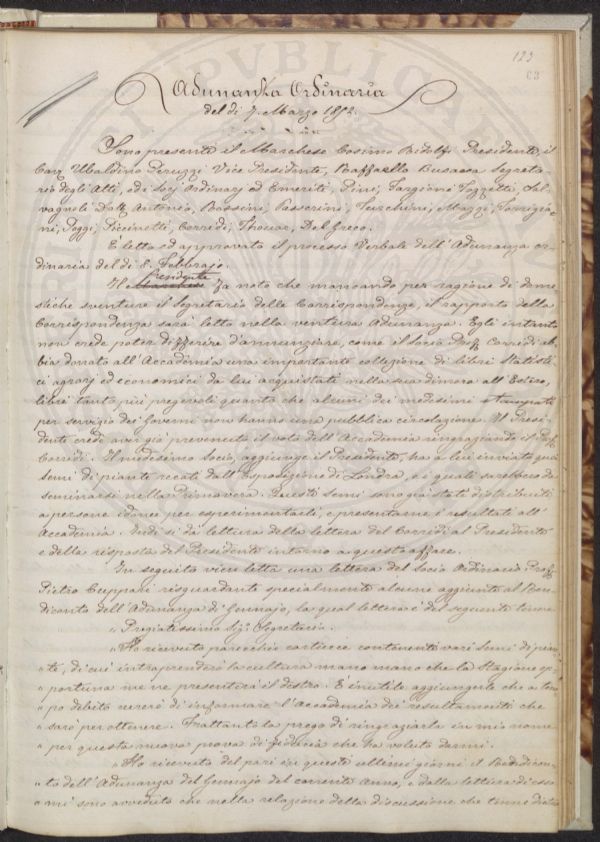 123
63
Adunanza Ordinaria
del dì 7. Marzo 1852.
Sono presenti il Marchese Cosimo Ridolfi Presidente, il
Cav. Ubaldino Peruzzi Vice Presidente, Raffaello Busacca Segreta
rio degli Atti, ed i Socj Ordinarj ed Emeriti, Pini, Targioni Tozzetti, Sal-
vagnoli Dott. Antonio, Passerini, Turchini, Mazzi, Torrigia-
ni, Poggi, Piccinetti, Corridi, Thouar, Del Greco.
È letto ed approvato il processo Verbale dell'Adunanza or-
dinaria del dì 8. Febbrajo.
Il Presidente fa noto che mancando per ragione di dome
stiche sventure il Segretario delle Corrispondenze, il rapporto della
Corrispondenza sarà letto nella ventura Adunanza. Egli intanto
non crede poter differire d'annunziare, come il Socio Prof. Corridi ab-
bia donato all'Accademia una importante collezione di libri Statisti-
ci agrarj ed economici da lui acquistati nella sua dimora all'Estero,
libri tanto più pregevoli quanto che alcuni dei medesimi stampati
per servizio dei Governi non hanno una pubblica circolazione. Il Presi-
dente crede aver già prevenuto il voto dell'Accademia ringraziando il Prof.
Corridi. Il medesimo Socio, aggiunge il Presidente, ha a lui inviato
semi di piante recati dall'Esposizione di Londra, e i quali da
seminarsi nella Primavera. Questi semi sono già stati distribuiti
a persone idonee per esperimentarli, e presentarne i resultati all'
Accademia. Indi si dà lettura della lettera del Corridi al Presidente
e della risposta del Presidente intorno a quest'affare.
In seguito vien letta una lettera del Socio Ordinario Prof.
Pietro Cuppari risguardante specialmente alcune aggiunte al Ren-
diconto dell'Adunanza di Gennajo, la qual lettera è del seguente tenore
„ Pregiatissimo Sig. Segretario.
„ Ho ricevuto parecchie cartucce contenenti varj semi di pian-
„ te, di cui intraprenderò la cultura mano mano che la Stagione op-
„ portuna me ne presenterà il destro. È inutile aggiungerle che a tem
„ po debito curerò di informare l'Accademia dei resultamenti che
„ sarò per ottenere. Frattanto la prego di ringraziarla in mio nome
„ per questa nuova prova di fiducia che ha voluto darmi.
„ Ho ricevuto del pari in questi ultimi giorni il Rendicon-
„ to dell'Adunanza del Gennajo del corrente Anno, e dalla lettura di esso
„ mi sono avveduto che nella relazione della discussione che tenne dietro